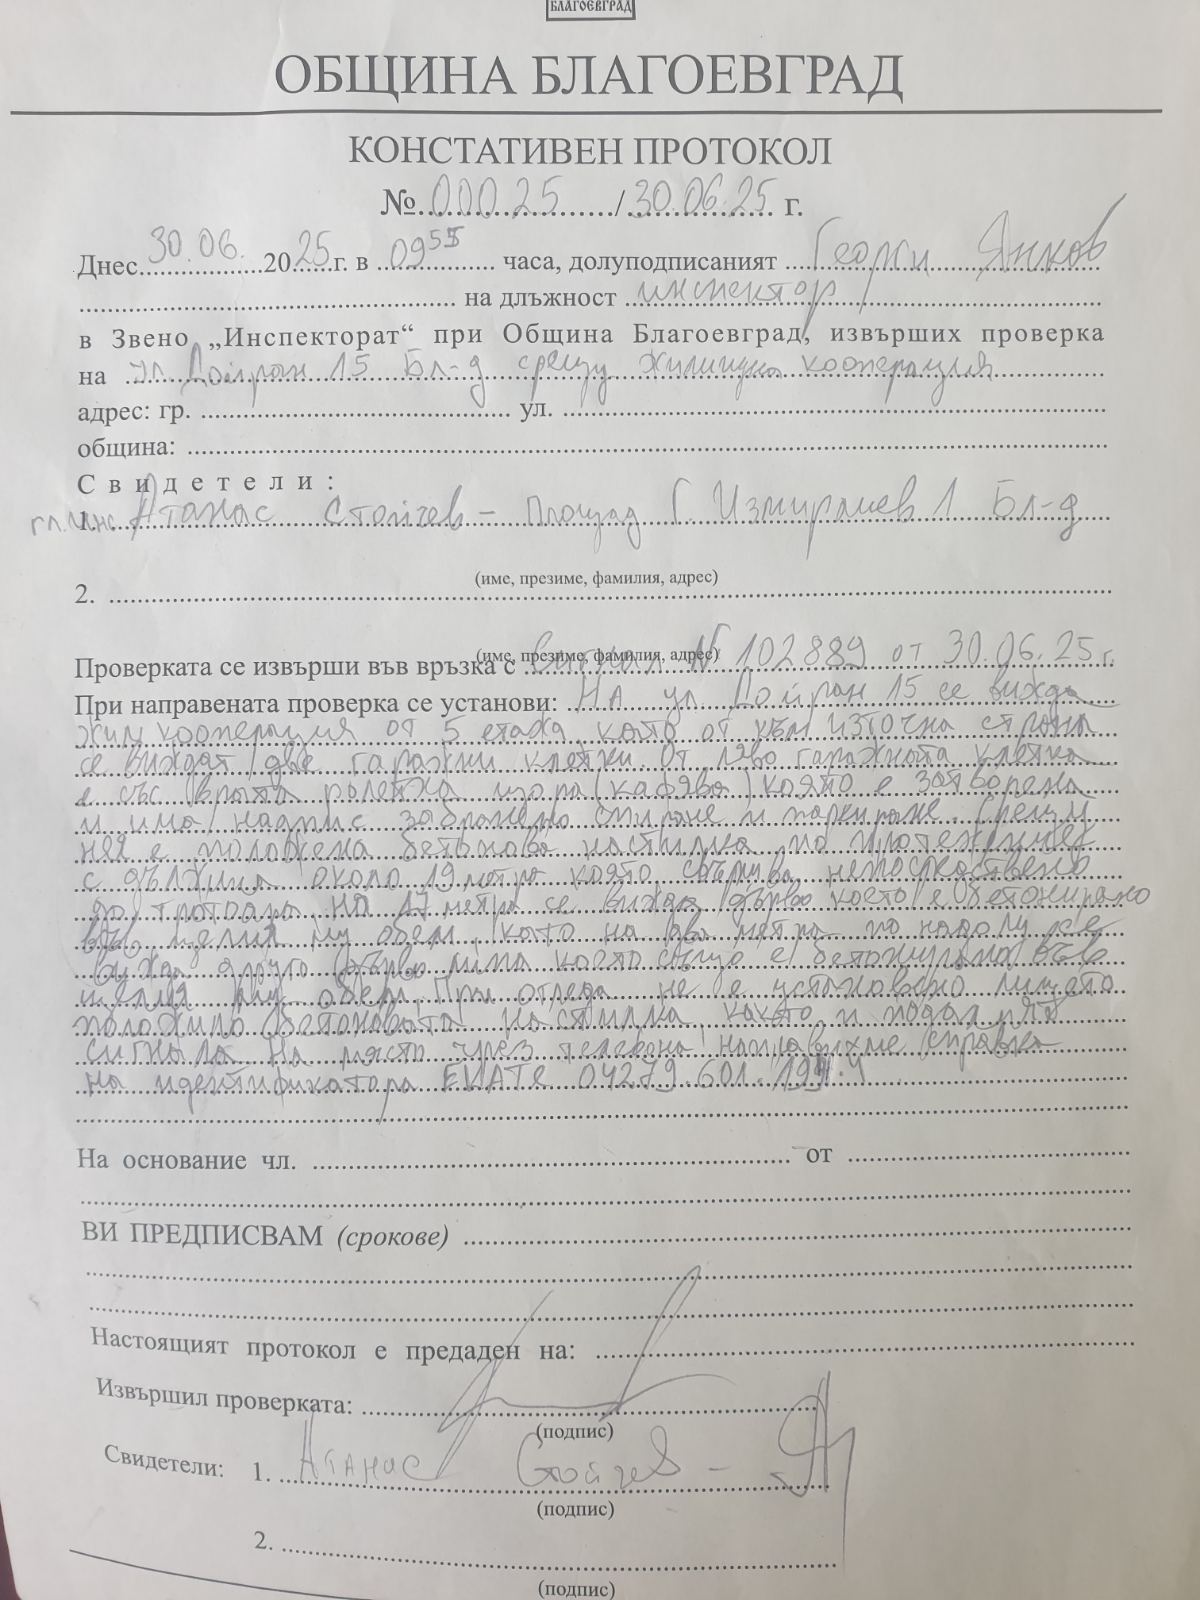 БЛАГОЕВГРАД
ОБЩИНА БЛАГОЕВГРАД
КОНСТАТИВЕН ПРОТОКОЛ
№ 00025 / 30.06.25 г.
Днес 30.06. 2025 г. в 09 55 часа, долуподписаният Георги Янков
на длъжност инспектор
в Звено „Инспекторат“ при Община Благоевград, извърших проверка
на ул Дойран 15 Бл-д срещу жилищна кооперация
адрес: гр. ул.
община:
Свидетели:
гл.инс 1. Атанас Стойчев – Площад Г. Измирлиев 1 Бл-д
(име, презиме, фамилия, адрес)
2.
(име, презиме, фамилия, адрес)
Проверката се извърши във връзка с Сигнал № 102889 от 30.06.25 г.
При направената проверка се установи: На ул Дойран 15 се вижда
жил кооперация от 5 етажа като от към източна страна
се виждат две гаражни клетки. От ляво гаражната клетка
е със врата ролетка цвят (кафяв) която е затворена
и има надпис забранено спиране и паркиране. Срещу
нея е положена бетонова настилка по протежение
с дължина около 19 метра която свършва непосредствено
до тротоара. На 17 метра се вижда дърво което е бетонирано
във целия му обем, като на два метра по надолу се
вижда друго дърво липа което също е бетонирано във
целия му обем. При огледа не е установено лицето
положило бетоновата настилка, както и подал
сигнала. На място чрез телефона направихме справка
на идентификатора ЕКАТЕ 04279.601.194.4
На основание чл. от
ВИ ПРЕДПИСВАМ (срокове)
Настоящият протокол е предаден на:
Извършил проверката:
(подпис)
Свидетели: 1. Атанас Стойчев –
(подпис)
2.
(подпис)